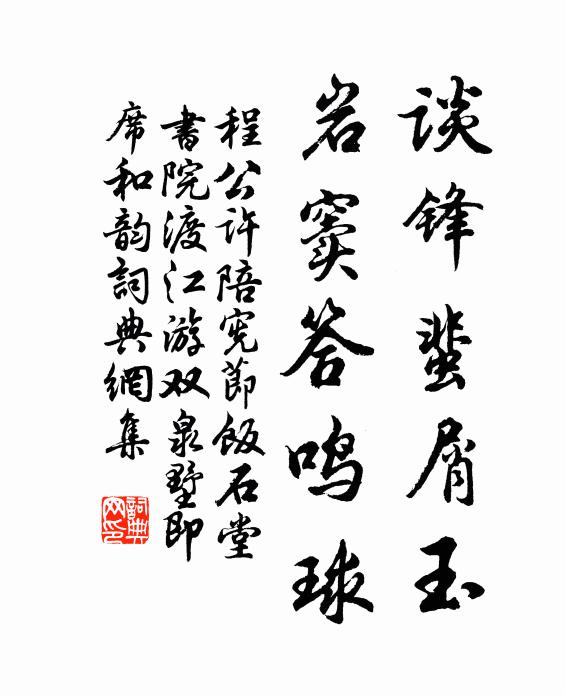 谈锋蜚屑玉
岩窦答鸣球
程公许陪宪莭飯石堂
書院渡江游双泉墅即
席和韵詞典網集
詞典网印